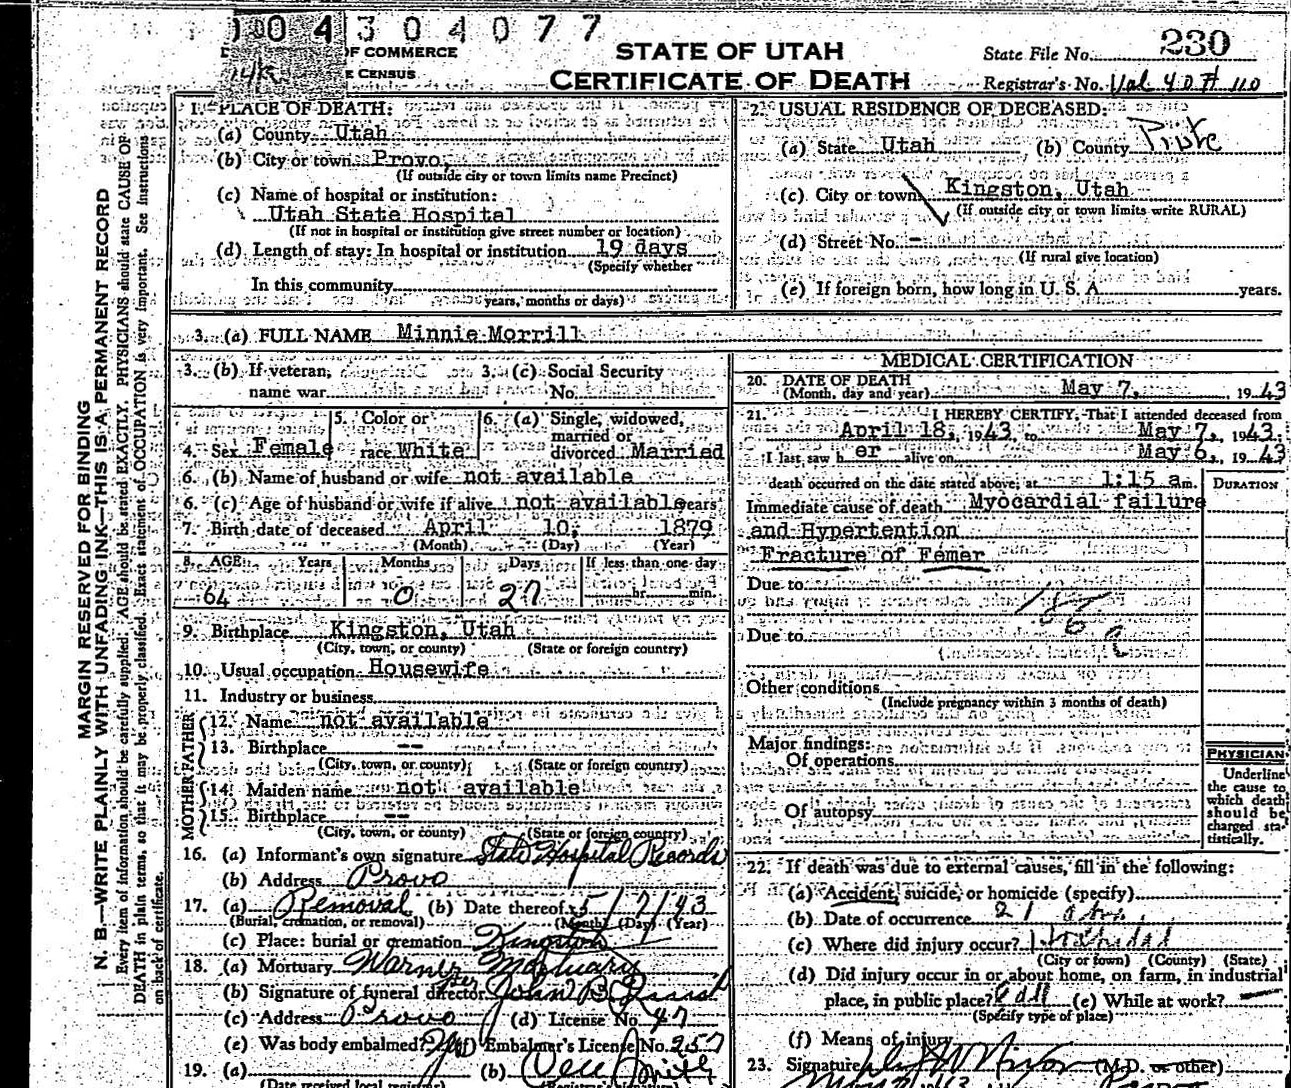 04304077
OF COMMERCE
E CENSUS
STATE OF UTAH
CERTIFICATE OF DEATH
State File No. 230
Registrar's No.
MARGIN RESERVED FOR BINDING
N. B.—WRITE PLAINLY WITH UNFADING INK—THIS IS A PERMANENT RECORD
Every item of information should be carefully supplied. AGE should be stated EXACTLY. PHYSICIANS should state CAUSE OF
DEATH in plain terms, so that it may be properly classified. Exact statement of OCCUPATION is very important. See instructions
on back of certificate.
1. PLACE OF DEATH:
(a) County Utah
(b) City or town Provo,
(If outside city or town limits name Precinct)
(c) Name of hospital or institution:
Utah State Hospital
(If not in hospital or institution give street number or location)
(d) Length of stay: In hospital or institution 19 days
(Specify whether
In this community
years, months or days)
2. USUAL RESIDENCE OF DECEASED:
(a) State Utah (b) County Piute
(c) City or town Kingston, Utah
(If outside city or town limits write RURAL)
(d) Street No. -
(If rural give location)
(e) If foreign born, how long in U. S. A. years.
3. (a) FULL NAME Minnie Morrill
3. (b) If veteran, name war
3. (c) Social Security No.
4. Sex Female
5. Color or race White
6. (a) Single, widowed, married or divorced Married
6. (b) Name of husband or wife not available
6. (c) Age of husband or wife if alive not available years
7. Birth date of deceased April 10, 1879
(Month) (Day) (Year)
8. AGE Years Months Days If less than one day
64 0 27 hr. min.
9. Birthplace Kingston, Utah
(City, town, or county) (State or foreign country)
10. Usual occupation Housewife
11. Industry or business
FATHER
12. Name not available
13. Birthplace --
(City, town, or county) (State or foreign country)
MOTHER
14. Maiden name not available
15. Birthplace --
(City, town, or county) (State or foreign country)
16. (a) Informant's own signature State Hospital Records
(b) Address Provo
17. (a) Removal (b) Date thereof 5/7/43
(Burial, cremation, or removal) (Month) (Day) (Year)
(c) Place: burial or cremation Kingston
18. (a) Mortuary Warner Mortuary
(b) Signature of funeral director per John B.
(c) Address Provo (d) License No. 47
(e) Was body embalmed? (f) Embalmer's License No. 257
19. (a) (b)
(Date received local registrar)
MEDICAL CERTIFICATION
20. DATE OF DEATH
(Month, day and year) May 7, 1943
21. I HEREBY CERTIFY, That I attended deceased from
April 18, 1943, to May 7, 1943.
I last saw her alive on May 6, 1943
death occurred on the date stated above, at 1:15 am.
DURATION
Immediate cause of death Myocardial failure
and Hypertention
Fracture of Femer
Due to
Due to
Other conditions
(Include pregnancy within 3 months of death)
Major findings:
Of operations
Of autopsy
PHYSICIAN
Underline
the cause to
which death
should be
charged sta-
tistically.
22. If death was due to external causes, fill in the following:
(a) Accident, suicide, or homicide (specify)
(b) Date of occurrence
(c) Where did injury occur?
(City or town) (County) (State)
(d) Did injury occur in or about home, on farm, in industrial
place, in public place? (e) While at work?
(Specify type of place)
(f) Means of injury
23. Signature (M.D. or other)